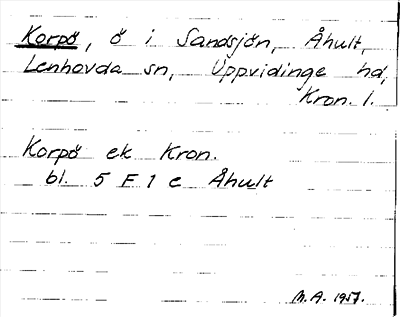 Korpö, ö i Sandsjön, Åhult,
Lenhovda sn, Uppvidinge hd,
Kron. l.
Korpö ek Kron.
bl. 5 F 1 c Åhult
M.A. 1957.